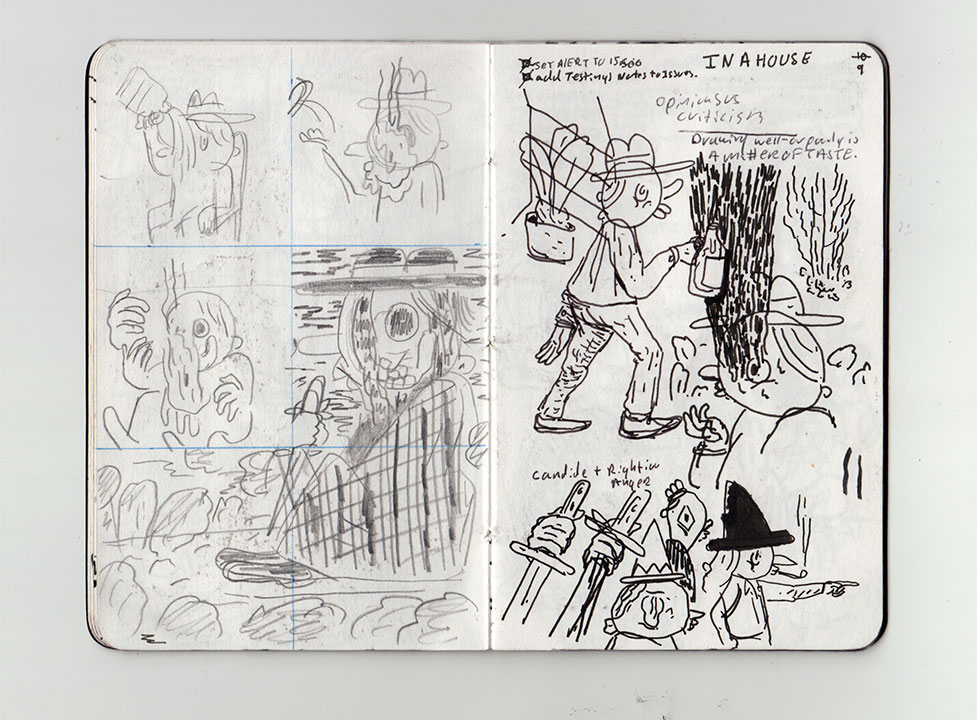 SET ALERT TO 15:00
add Testings Notes to Issues.
IN A HOUSE
10
9
opinionsus
criticism
Drawing well or poorly is
A MATTER OF TASTE.
candide + Right in
ANGER